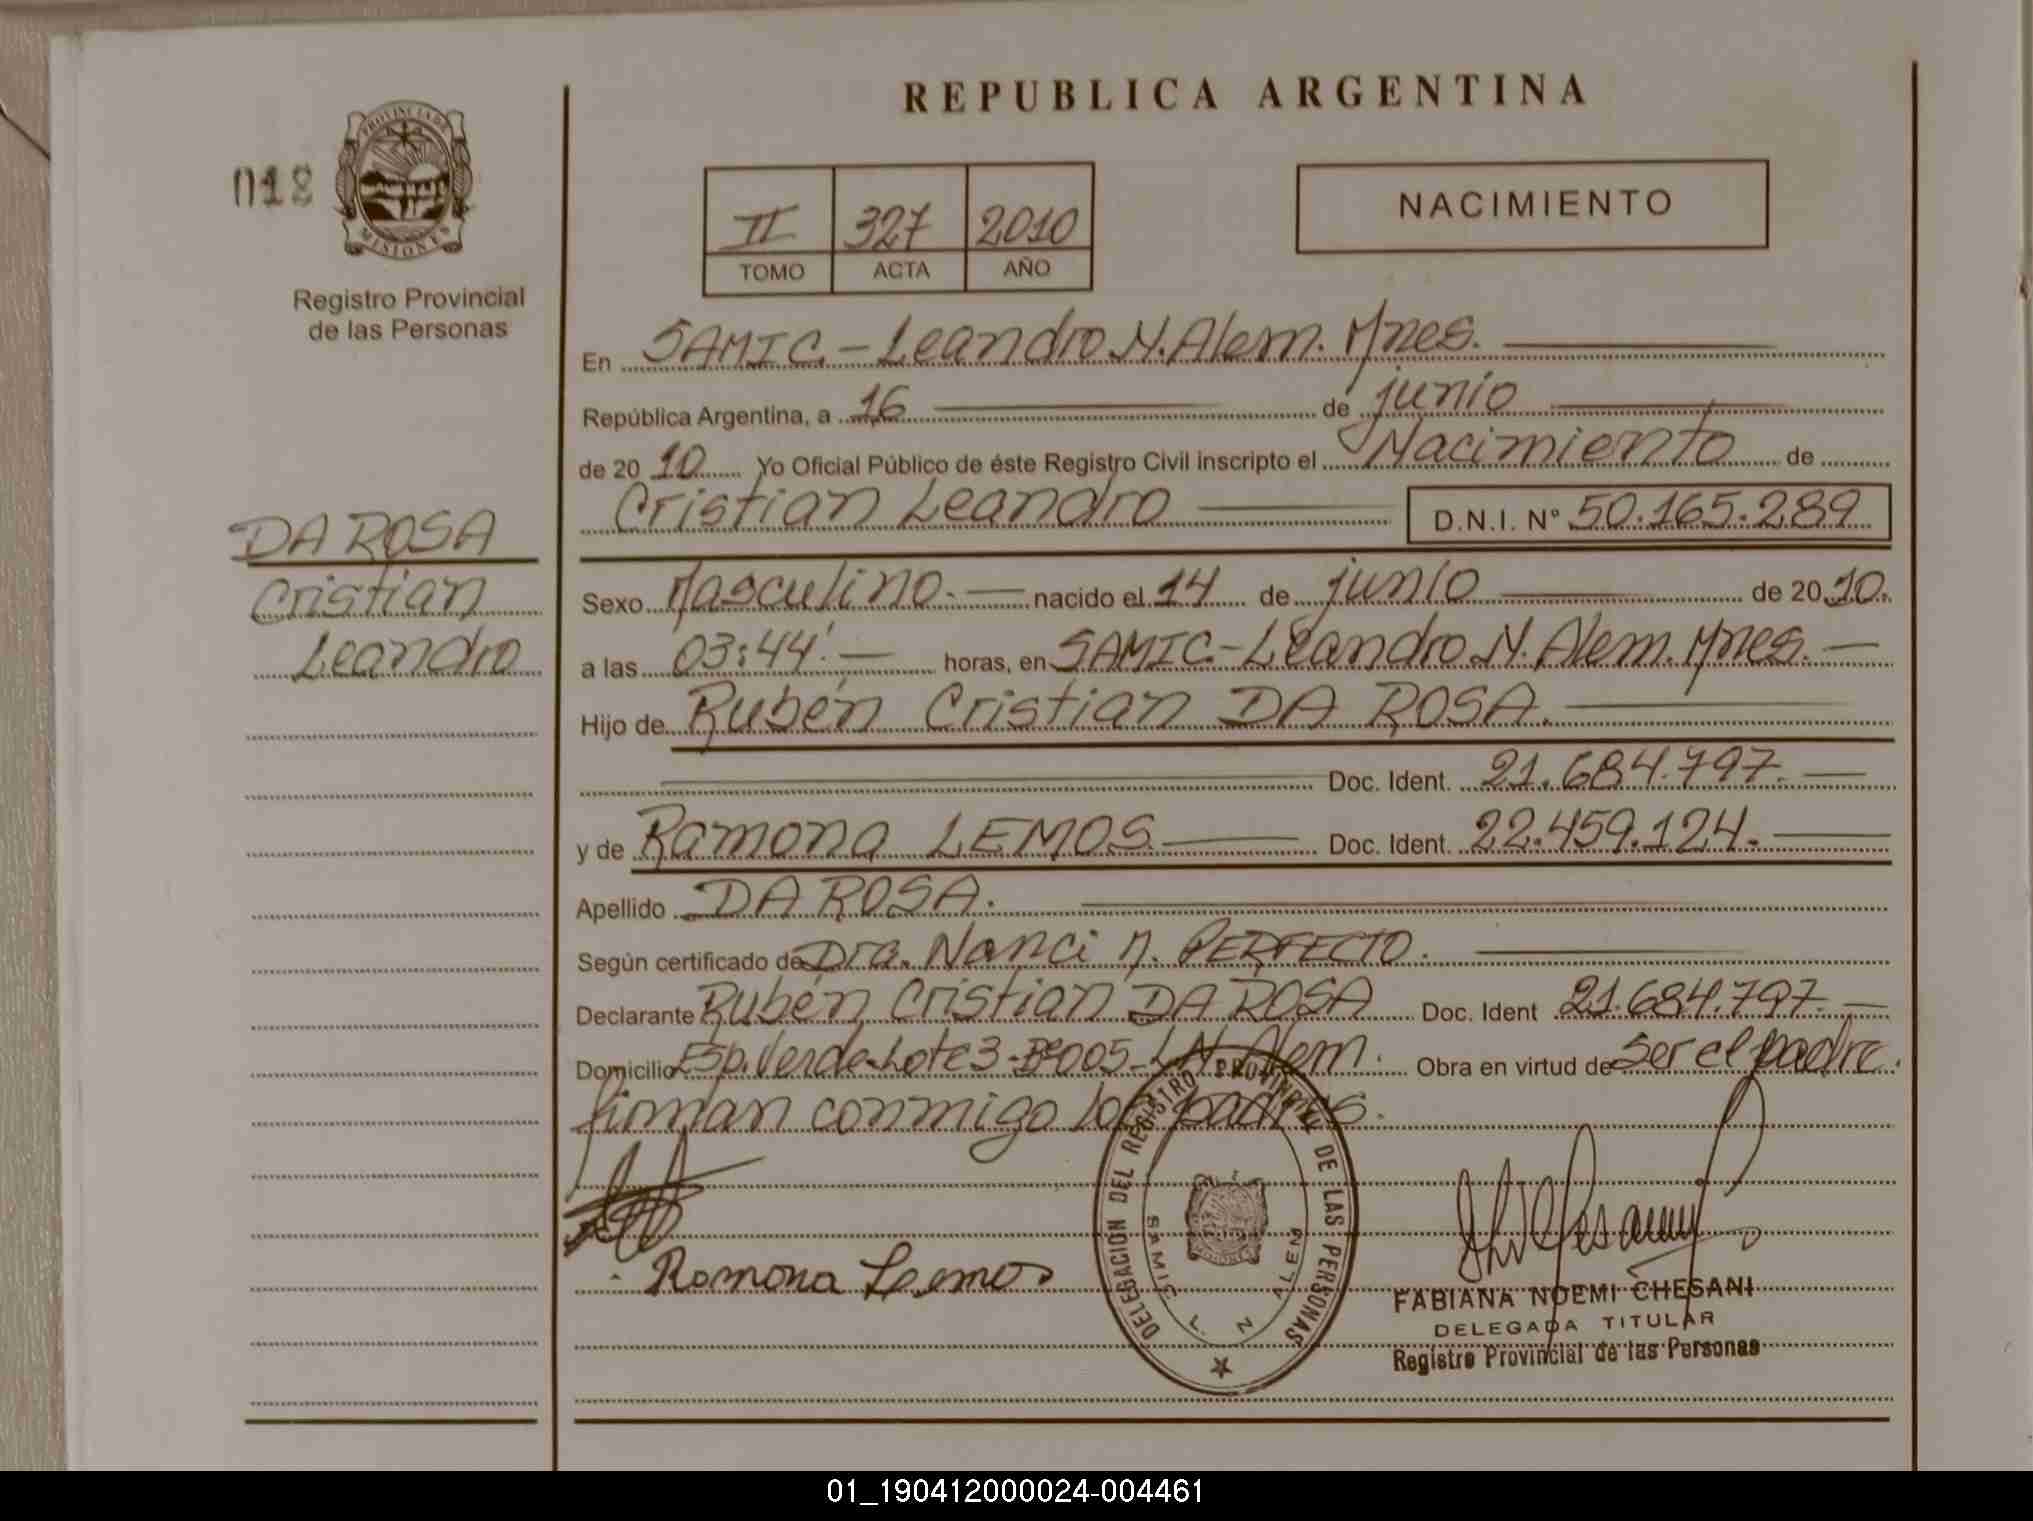 REPUBLICA ARGENTINA
018
PROVINCIA DE
MISIONES
Registro Provincial
de las Personas
II 327 2010
TOMO ACTA AÑO
NACIMIENTO
En SAMIC.-Leandro N. Alem. Mnes.
República Argentina, a 16 de junio
de 2010 Yo Oficial Público de éste Registro Civil inscripto el Nacimiento de
Cristian Leandro D.N.I. N° 50.165.289
DA ROSA
Cristian
Leandro
Sexo Masculino.- nacido el 14 de junio de 2010.
a las 03:44'.- horas, en SAMIC-Leandro N. Alem. Mnes.-
Hijo de Rubén Cristian DA ROSA.
Doc. Ident. 21.684.797.-
y de Ramona LEMOS Doc. Ident. 22.459.124.-
Apellido DA ROSA.
Según certificado de Dra. Nanci M. PERFECTO.
Declarante Rubén Cristian DA ROSA Doc. Ident 21.684.797.-
Domicilio Esp. Verde-Lote 3-B°005-L.N. Alem. Obra en virtud de ser el padre.
firman conmigo los padres.
Ramona Lemos
DELEGACION DEL REGISTRO PROVINCIAL DE LAS PERSONAS
SAMIC L. N. ALEM
FABIANA NOEMI CHESANI
DELEGADA TITULAR
Registro Provincial de las Personas
01_190412000024-004461